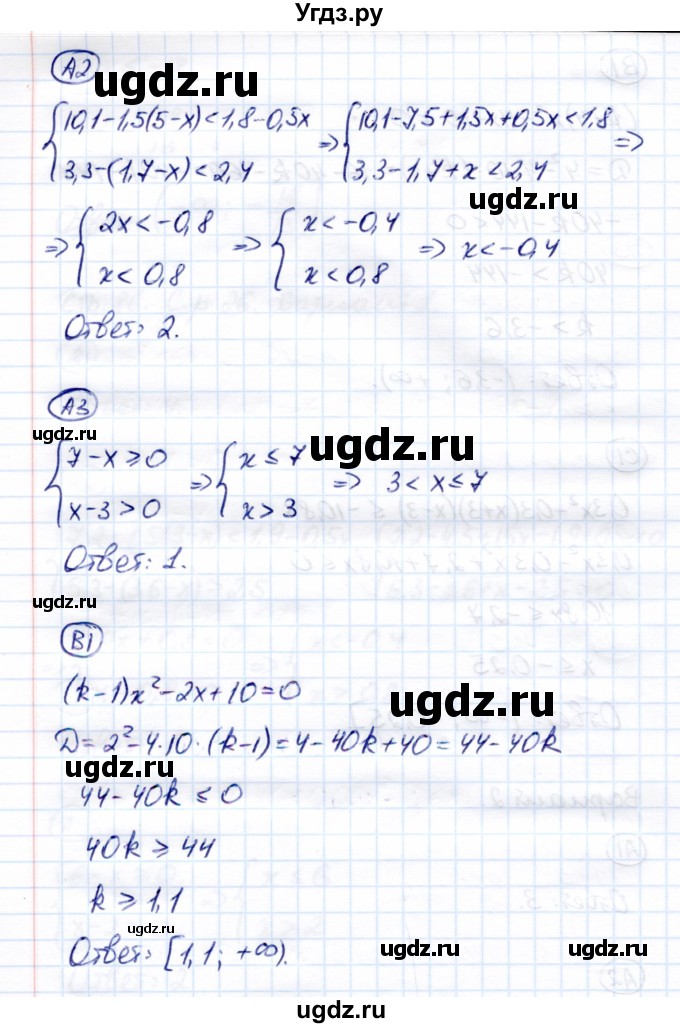 Угдз.ру
A2
{10,1-1,5(5-x)<1,8-0,5x => {10,1-7,5+1,5x+0,5x<1,8 =>
{3,3-(1,7-x)<2,4 {3,3-1,7+x<2,4
ugdz.ru
=> {2x<-0,8 => {x<-0,4 => x<-0,4
{x<0,8 {x<0,8
Ответ: 2.
A3
ugdz.ru
ugdz.ru
{7-x≥0 => {x≤7 => 3<x≤7
{x-3>0 {x>3
Ответ: 1.
ugdz.ru
B1
(k-1)x²-2x+10=0
ugdz.ru
D=2²-4·10·(k-1)=4-40k+40=44-40k
44-40k≤0
40k≥44
k≥1,1
ugdz.ru
Ответ: [1,1; +∞).
ugdz.ru
ugdz.ru
ugdz.ru